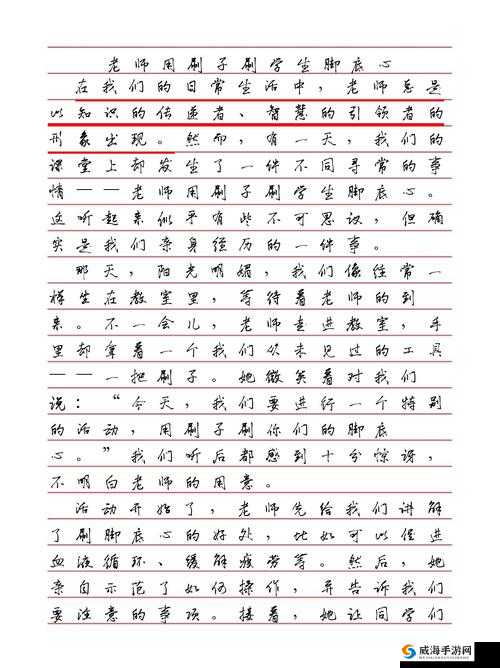 老师用刷子刷学生脚底心
在我们的日常生活中，老师总是
以知识的传递者、智慧的引领者的
形象出现。然而，有一天，我们的
课堂上却发生了一件不同寻常的事
情——老师用刷子刷学生脚底心。
这听起来似乎有些不可思议，但确
实是我们亲身经历的一件事。
那天，阳光明媚，我们像往常一
样坐在教室里，等待着老师的到
来。不一会儿，老师走进教室，手
里却拿着一个我们从未见过的工具
——一把刷子。她微笑着对我们
说：“今天，我们要进行一个特别
的活动，用刷子刷你们的脚底
心。”我们听后都感到十分惊讶，
不明白老师的用意。
活动开始了，老师先给我们讲解
了刷脚底心的好处，比如可以促进
血液循环、缓解疲劳等。然后，她
亲自示范了如何操作，并告诉我们
要注意的事项。接着，她让同学们
威海手游网